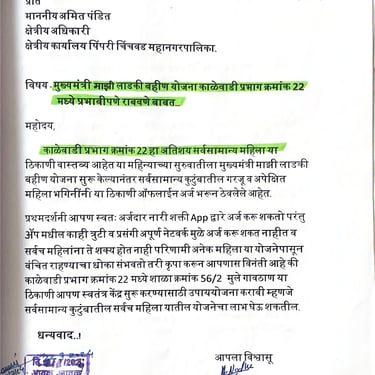 प्रति
माननीय अमित पंडित
क्षेत्रीय अधिकारी
क्षेत्रीय कार्यालय पिंपरी चिंचवड महानगरपालिका.
विषय - मुख्यमंत्री माझी लाडकी बहीण योजना काळेवाडी प्रभाग क्रमांक 22
मध्ये प्रभावीपणे राबवणे बाबत..
महोदय,
काळेवाडी प्रभाग क्रमांक 22 हा अतिशय सर्वसामान्य महिला या
ठिकाणी वास्तव्य आहेत या महिन्याच्या सुरुवातीला मुख्यमंत्री माझी लाडकी
बहीण योजना सुरू केल्यानंतर सर्वसामान्य कुटुंबातील गरजू व अपेक्षित
महिला भगिनींनी या ठिकाणी ऑफलाईन अर्ज भरून ठेवलेले आहेत.
प्रथमदर्शनी आपण स्वतः अर्जदार नारी शक्ती App द्वारे अर्ज करू शकतो परंतु
ॲप मधील काही त्रुटी व प्रसंगी अपूर्ण नेटवर्क मुळे अर्ज करू शकत नाहीत व
सर्वच महिलांना ते शक्य होत नाही परिणामी अनेक महिला या योजनेपासून
वंचित राहण्याचा धोका संभवतो तरी कृपा करून आपणास विनंती आहे की
काळेवाडी प्रभाग क्रमांक 22 मध्ये शाळा क्रमांक 56/2 मुले गावठाण या
ठिकाणी आपण स्वतंत्र केंद्र सुरू करण्यासाठी उपाययोजना करावी म्हणजे
सर्वसामान्य कुटुंबातील सर्वच महिला यातील योजनेचा लाभ घेऊ शकतील.
धन्यवाद..!
आपला विश्वासू